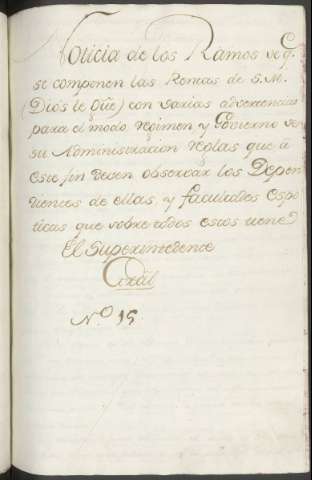 Noticia de los Ramos de q.
se componen las Rentas de S. M.
(Dios le gũe) con varias advertencias
para el modo regimen y Govierno de
su Administracion reglas que à
este fin deven observar los Depen
dientes de ellas, y facultades espe
ticas que sobre todos estos tiene
El Superintendente
Gral
Nº 15.